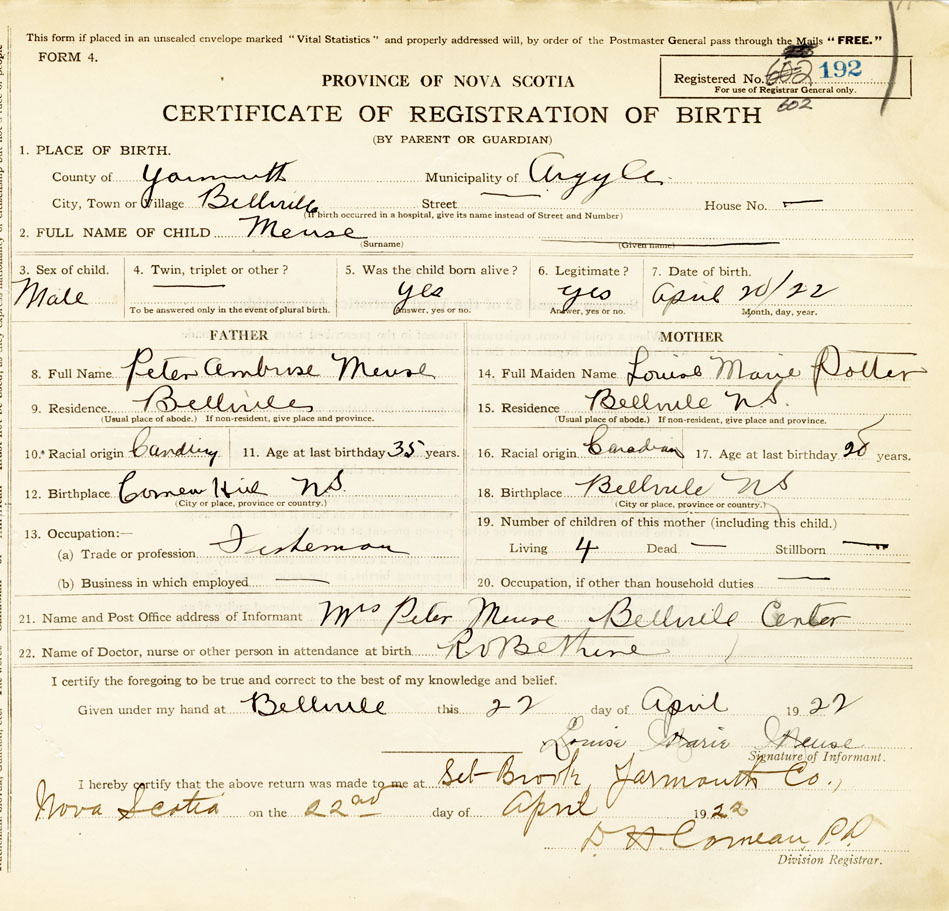 This form if placed in an unsealed envelope marked "Vital Statistics" and properly addressed will, by order of the Postmaster General pass through the Mails "FREE."
FORM 4.
PROVINCE OF NOVA SCOTIA
Registered No. 602 192
For use of Registrar General only.
602
CERTIFICATE OF REGISTRATION OF BIRTH
(BY PARENT OR GUARDIAN)
1. PLACE OF BIRTH.
County of Yarmouth Municipality of Argyle
City, Town or Village Bellville Street — House No. —
(If birth occurred in a hospital, give its name instead of Street and Number)
2. FULL NAME OF CHILD Meuse
(Surname) (Given name)
3. Sex of child. 4. Twin, triplet or other? 5. Was the child born alive? 6. Legitimate? 7. Date of birth.
Male — yes yes April 20/22
To be answered only in the event of plural birth. Answer, yes or no. Answer, yes or no. Month, day, year.
FATHER MOTHER
8. Full Name Peter Ambrose Meuse 14. Full Maiden Name Louise Marie Potter
9. Residence Bellville 15. Residence Bellville N.S.
(Usual place of abode.) If non-resident, give place and province. (Usual place of abode.) If non-resident, give place and province.
10. Racial origin 11. Age at last birthday 35 years. 16. Racial origin Canadian 17. Age at last birthday years.
12. Birthplace Hill N.S. 18. Birthplace Bellville NS
(City or place, province or country.) (City or place, province or country.)
13. Occupation:— 19. Number of children of this mother (including this child.)
(a) Trade or profession Fisherman Living 4 Dead — Stillborn —
(b) Business in which employed — 20. Occupation, if other than household duties —
21. Name and Post Office address of Informant Mrs Peter Meuse Bellville Center
22. Name of Doctor, nurse or other person in attendance at birth
I certify the foregoing to be true and correct to the best of my knowledge and belief.
Given under my hand at Bellville this 22 day of April 1922
Louise Marie Meuse
Signature of Informant.
I hereby certify that the above return was made to me at Brook, Yarmouth Co.,
Nova Scotia on the 22nd day of April 1922
D. H. Comeau
Division Registrar.